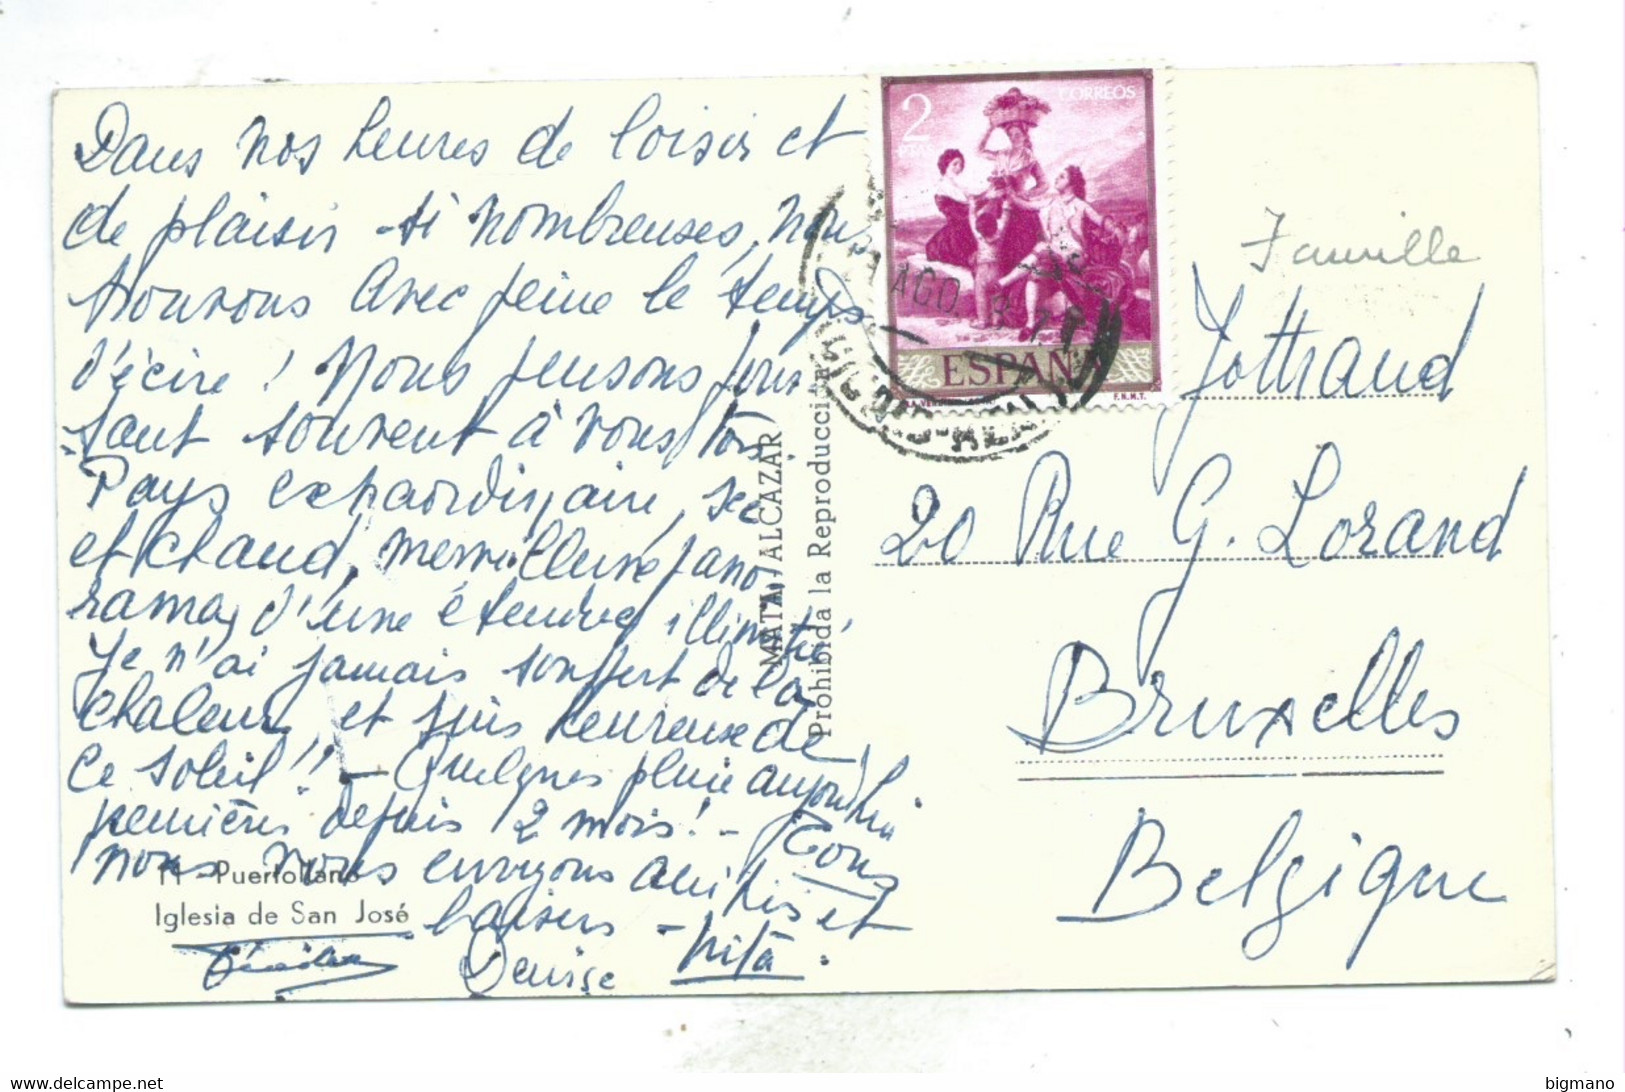 Dans nos heures de loisir et
de plaisir si nombreuses, nous
trouvons avec peine le temps
d'écrire ! Nous pensons pour
tant souvent à vous tous.
Pays extraordinaire, sec
et chaud, merveilleux pano-
rama, d'une étendue illimitée
Je n'ai jamais souffert de la
chaleur, et suis heureuse de
ce soleil !! - Quelques pluie aujourd'hui
premières depuis 2 mois ! - Tous
nous vous envoyons amitiés et
baisers -
Nita.
Denise
11 - Puertollano
Iglesia de San José
MATA, ALCAZAR
Prohibida la Reproducción
2
PTAS
CORREOS
ESPAÑA
F.N.M.T.
AGO.
Famille
Jottrand
20 Rue G. Lorand
Bruxelles
Belgique
bigmano
delcampe.net